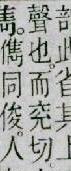 部此省其上
聲也。而兗切。
儁同俊。人